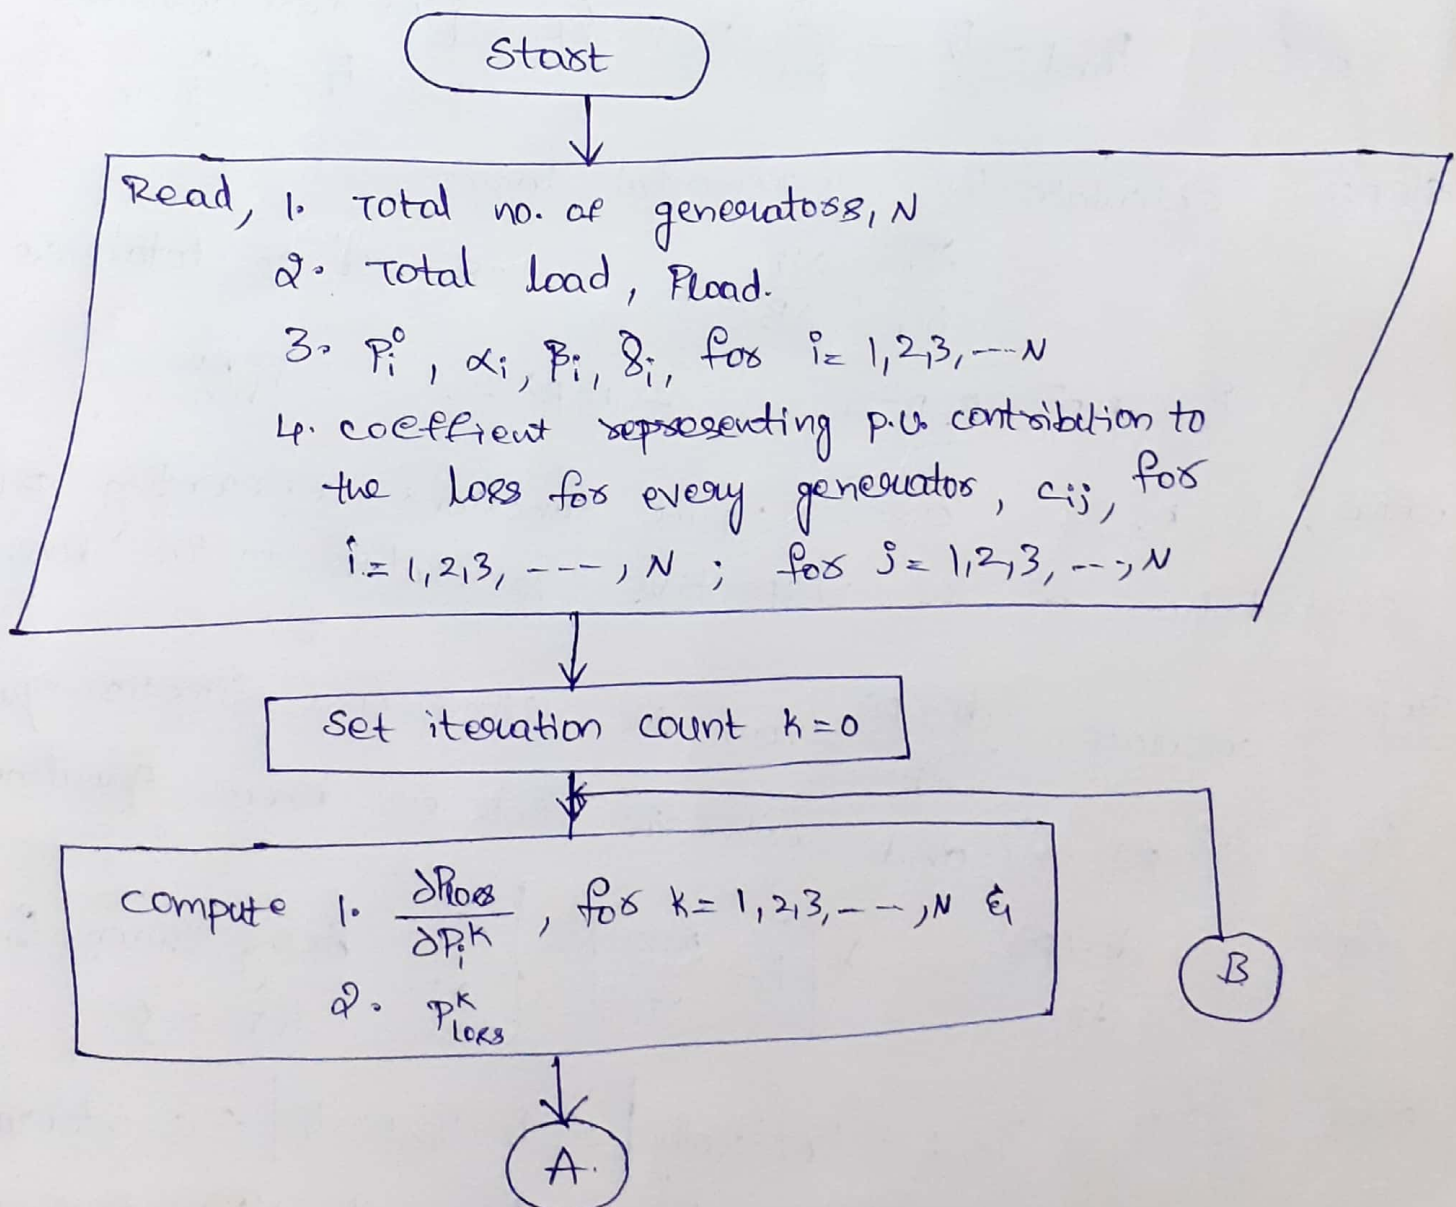 Start
Read, 1. Total no. of generators, N
2. Total load, Pload.
3. Pᵢ⁰, αᵢ, βᵢ, γᵢ, for i= 1,2,3,---N
4. coeffient representing p.u. contribition to
the loss for every generator, cij, for
i = 1,2,3, ---, N ; for j = 1,2,3, --, N
Set iteration count k=0
compute 1. ∂Ploss/∂Pᵢᵏ, for k= 1,2,3,---,N &
2. Pᵏloss
B
A.